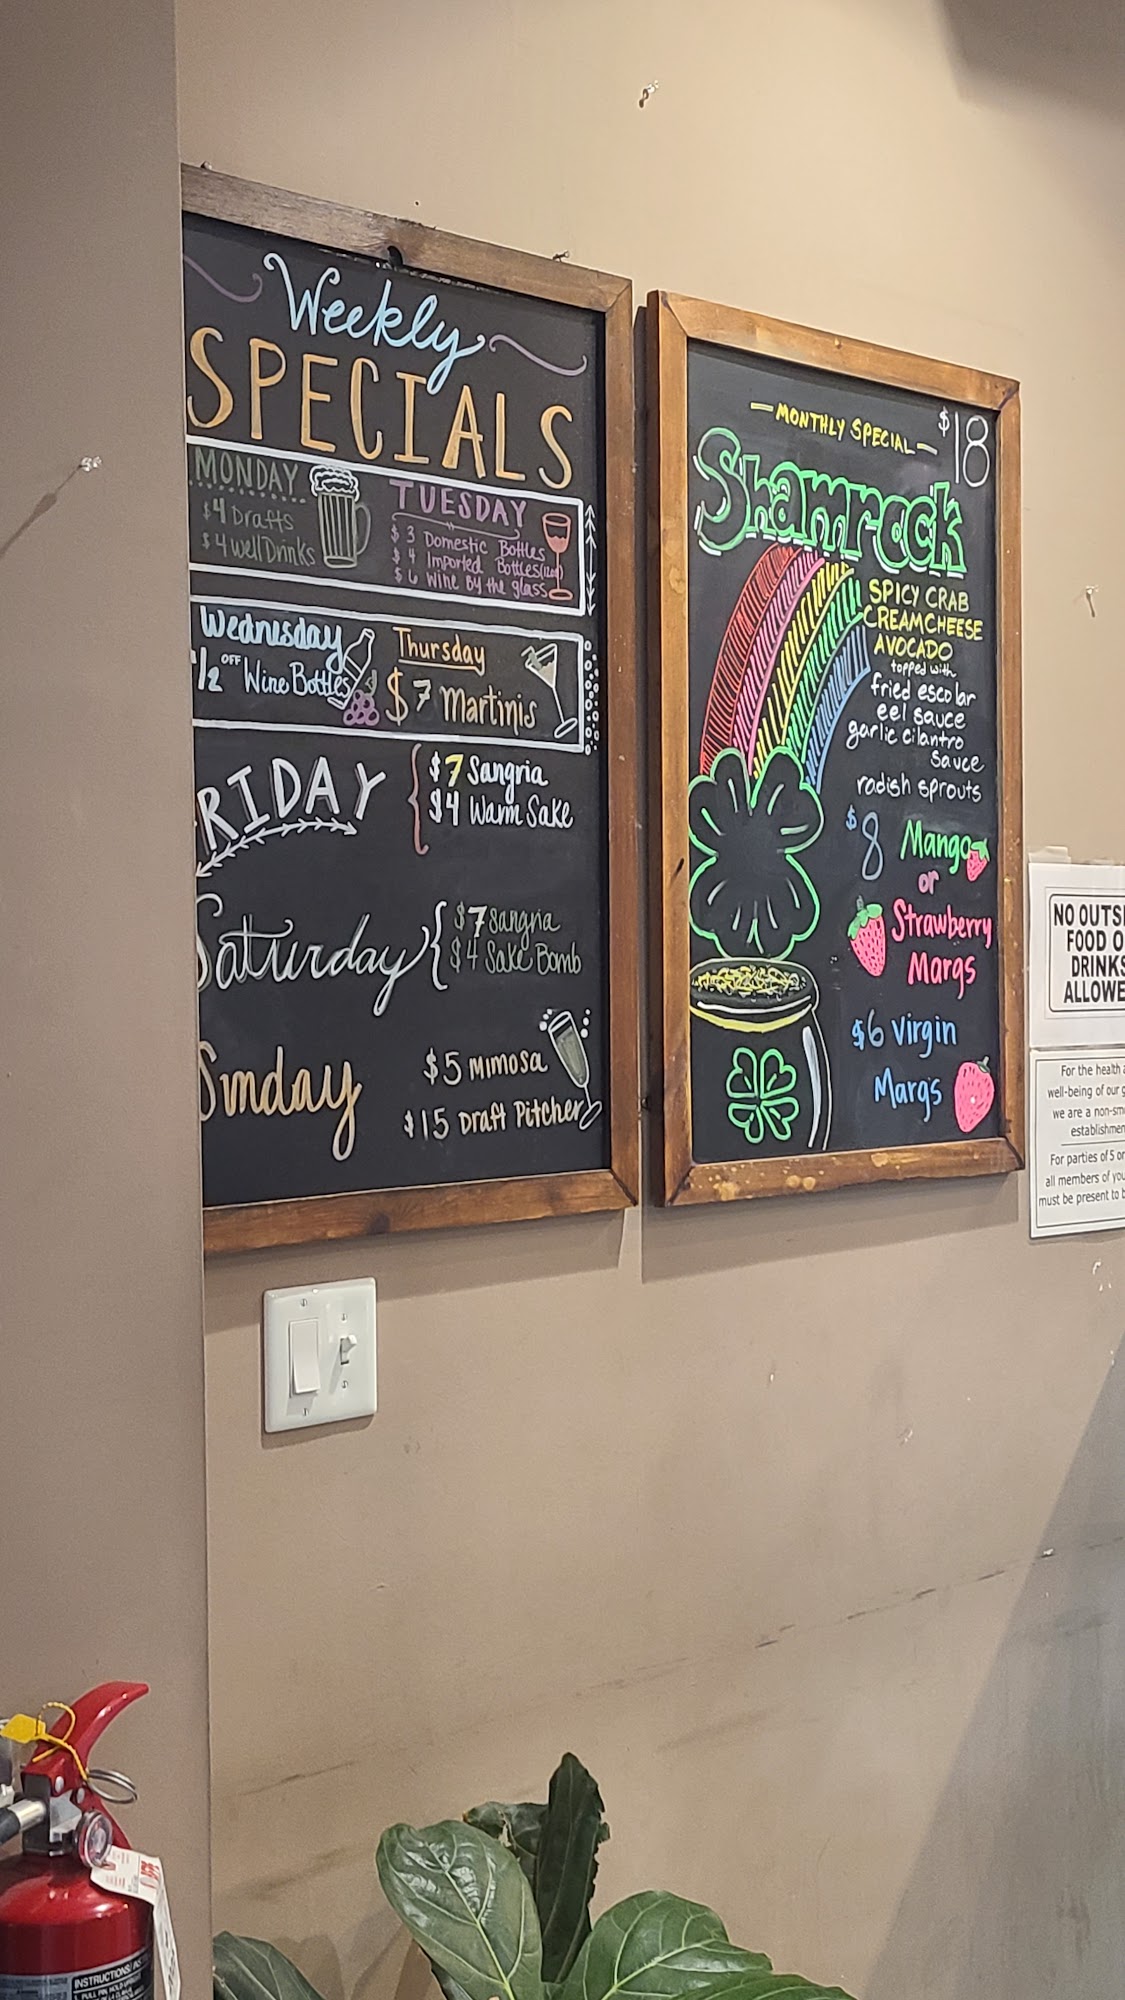 Weekly
SPECIALS
MONDAY
$4 Drafts
$4 Well Drinks
TUESDAY
$3 Domestic Bottles
$4 Imported Bottles
$6 Wine by the glass
Wednesday
1/2 OFF Wine Bottles
Thursday
$7 Martinis
FRIDAY
$7 Sangria
$4 Warm Sake
Saturday
$7 Sangria
$4 Sake Bomb
Sunday
$5 Mimosa
$15 Draft Pitcher
MONTHLY SPECIAL
$18
Shamrock
SPICY CRAB
CREAMCHEESE
AVOCADO
topped with
fried escolar
eel sauce
garlic cilantro
sauce
radish sprouts
$8 Mango
or
Strawberry
Margs
$6 Virgin
Margs
NO OUTSI
FOOD O
DRINKS
ALLOWE
For the health a
well-being of our g
we are a non-sm
establishmen
For parties of 5 or
all members of you
must be present to b
INSTRUCTIONS